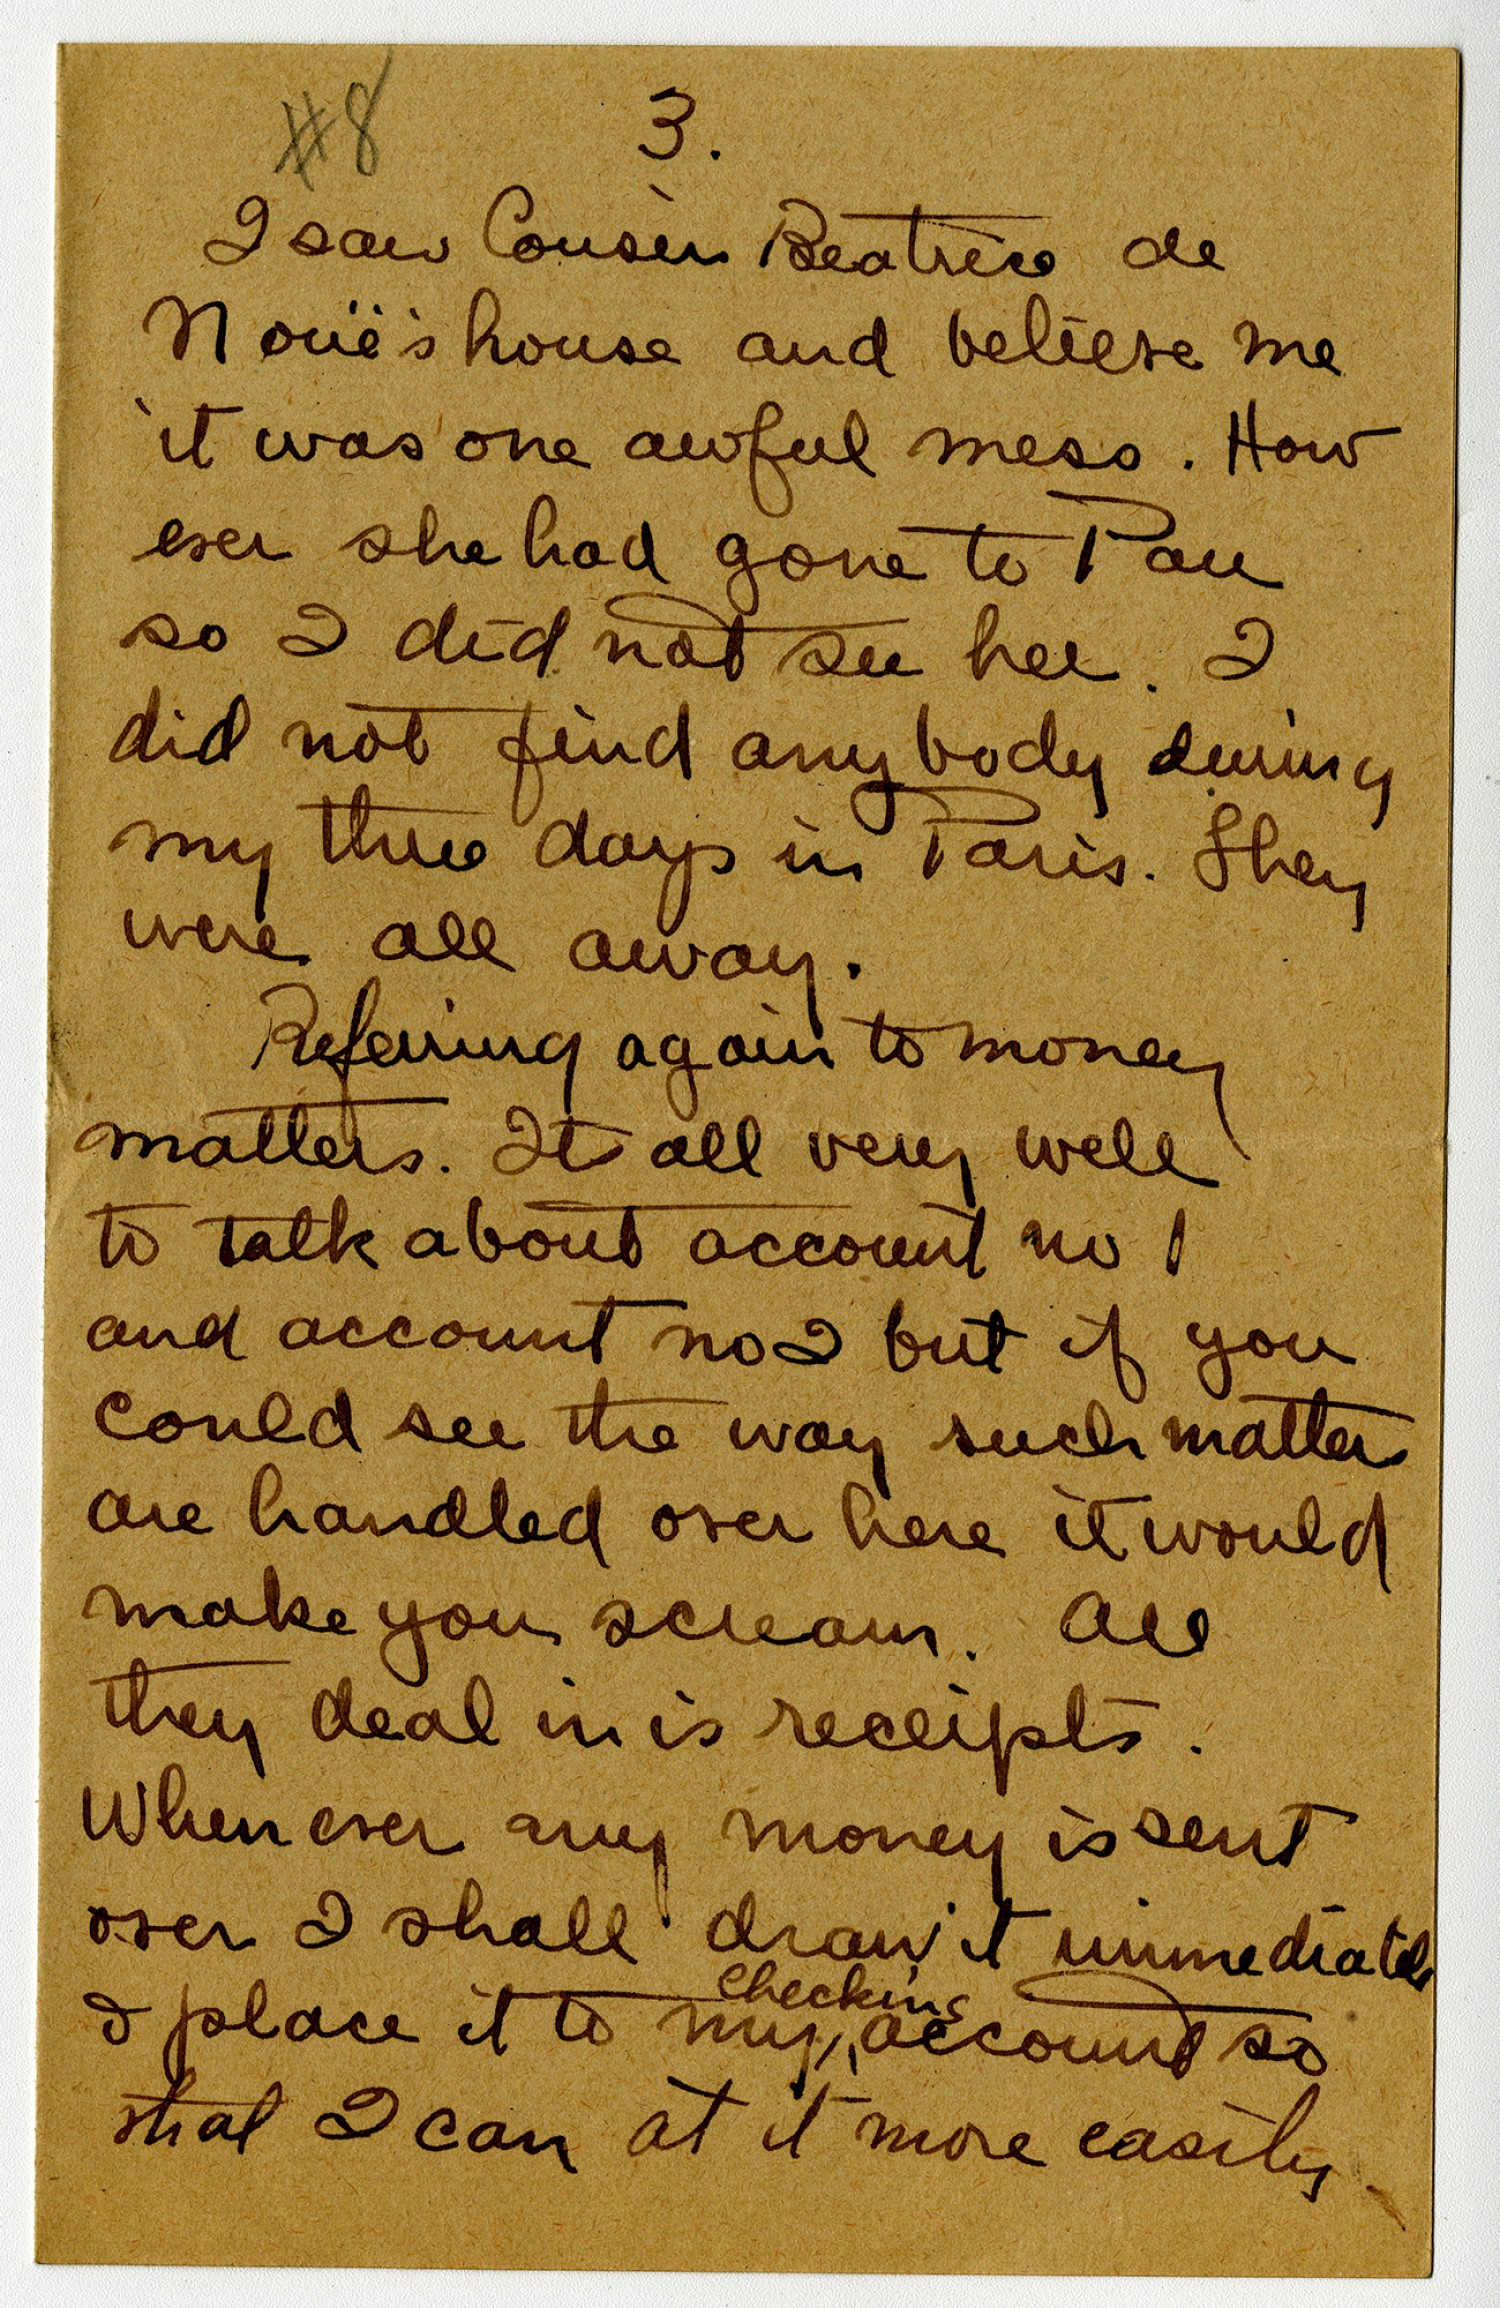 #8
3.
I saw Cousin Beatrice de
Nouë's house and believe me
it was one awful mess. How
ever she had gone to Pau
so I did not see her. I
did not find anybody during
my three days in Paris. They
were all away.
Referring again to money
matters. Its all very well
to talk about account no 1
and account no 2 but if you
could see the way such matters
are handled over here it would
make you scream. All
they deal in is receipts.
When ever any money is sent
over I shall draw it immediately
& place it to my checking account so
that I can at it more easily